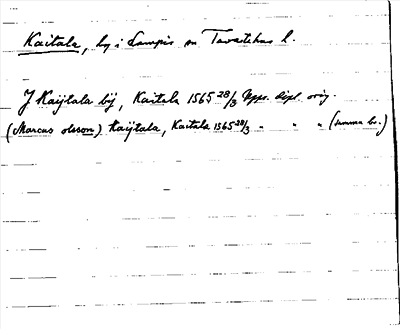 Kaitala, by i Lampis sn Tavastehus l.
J Kaijtala bÿ, Kaitala 1565 28/3 Upps. dipl. orig.
(Marcus olsson) Kaijtala, Kaitala 1565 28/3 " " " (samma br.)